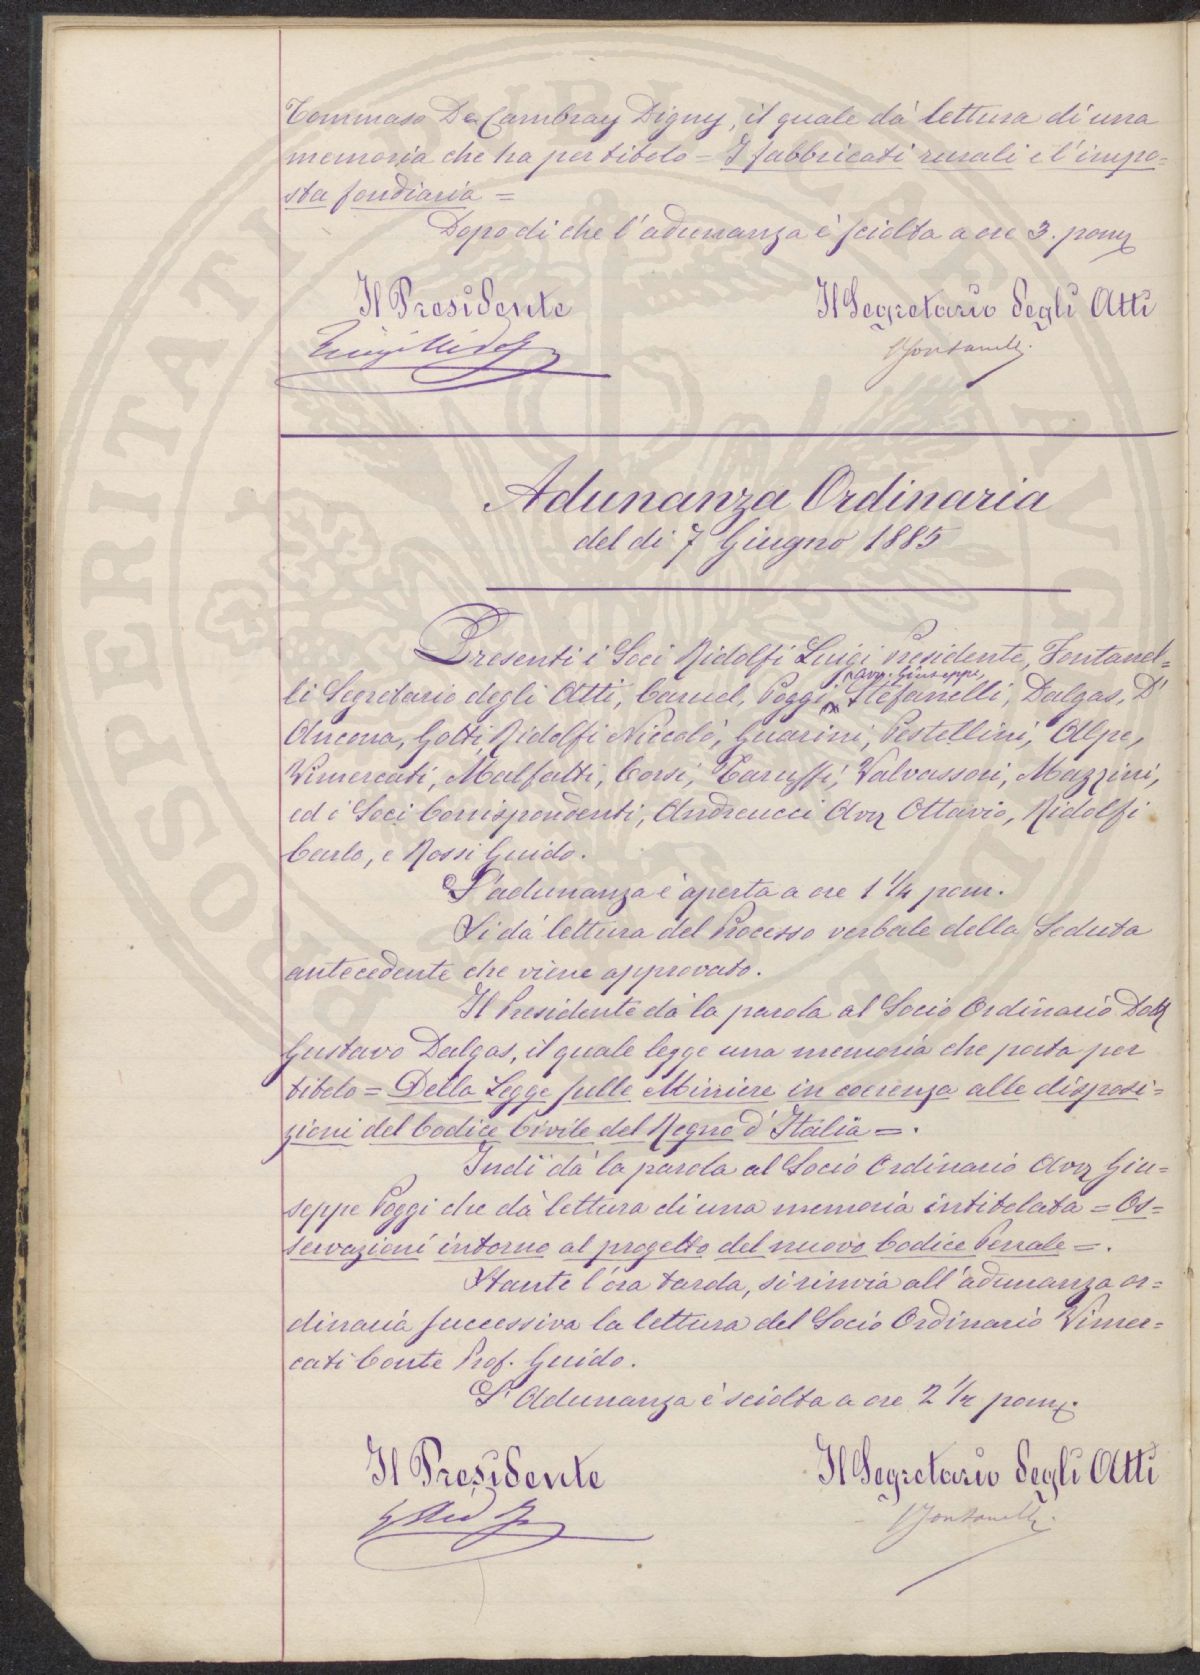 Tommaso De Cambray Digny, il quale dà lettura di una
memoria che ha per titolo = I fabbricati rurali e l'impo=
sta fondiaria =
Dopo di che l'adunanza è sciolta a ore 3. pom
Il Presidente
Il Segretario degli Atti
Luigi Ridolfi
Fontanelli
Adunanza Ordinaria
del dì 7 Giugno 1885
Presenti i Soci Ridolfi Luigi Presidente, Fontanel=
avv. Giuseppe,
li Segretario degli Atti, Caruel, Poggi, Stefanelli, Dalgas, D'
Ancona, Gotti, Ridolfi Niccolò, Guarini, Pestellini, Alpe,
Vimercati, Malfatti, Corsi, Taruffi, Valvassori, Mazzini,
ed i Soci Corrispondenti, Andreucci Avv Ottavio, Ridolfi
Carlo, e Rossi Guido.
L'adunanza è aperta a ore 1 1/4 pom.
Si dà lettura del Processo verbale della Seduta
antecedente che viene approvato.
Il Presidente dà la parola al Socio Ordinario Dott
Gustavo Dalgas, il quale legge una memoria che porta per
titolo = Della Legge sulle Miniere in coerenza alle disposi=
zioni del Codice Civile del Regno d'Italia =.
Indi dà la parola al Socio Ordinario Avv Giu=
seppe Poggi che dà lettura di una memoria intitolata = Os=
servazioni intorno al progetto del nuovo Codice Penale =.
Stante l'ora tarda, si rinvia all'adunanza or=
dinaria successiva la lettura del Socio Ordinario Vimer=
cati Conte Prof. Guido.
L'Adunanza è sciolta a ore 2 1/2 pom.
Il Presidente
Il Segretario degli Atti
L Ridolfi
Fontanelli